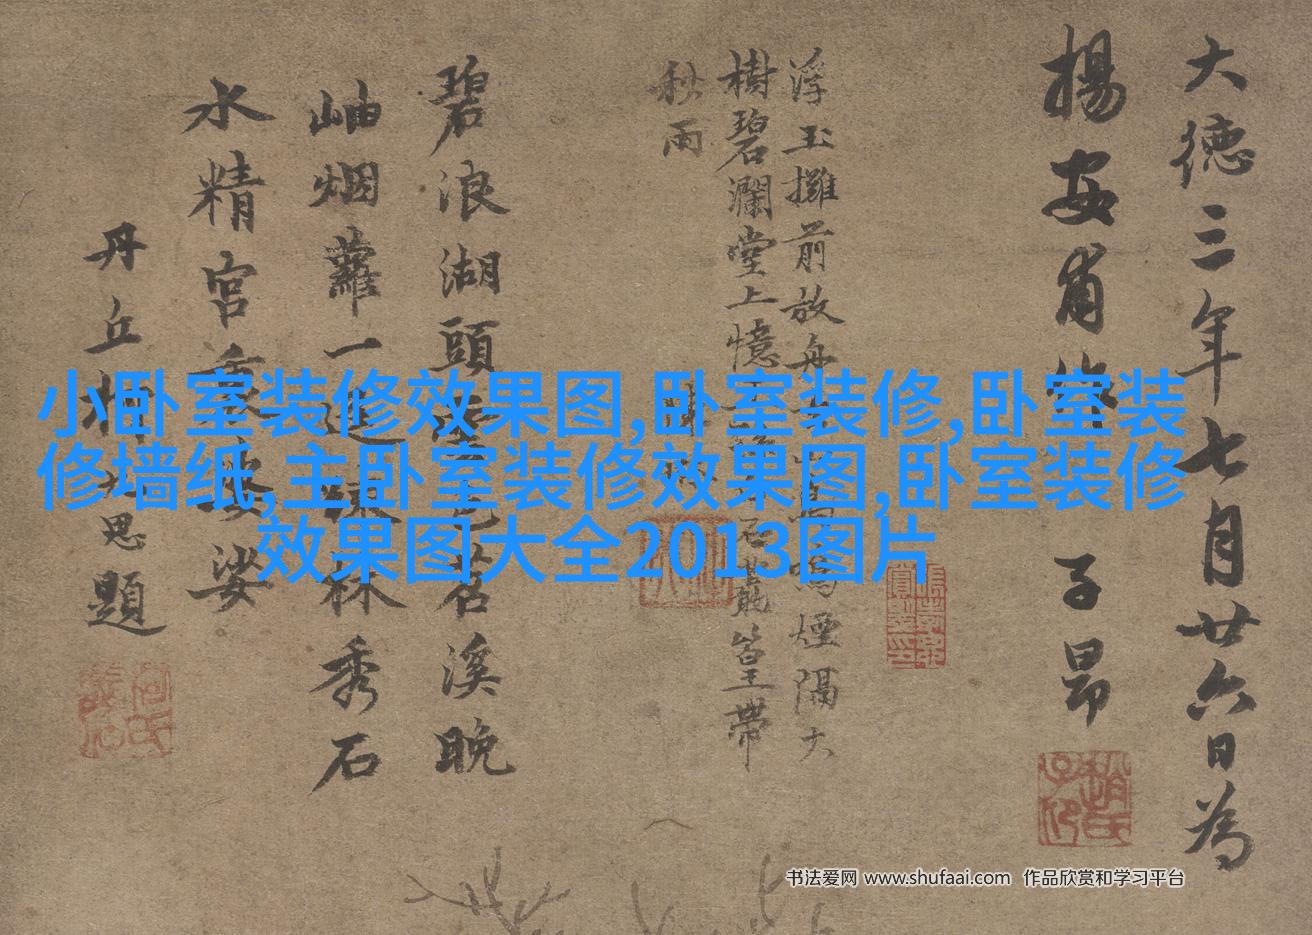 大德三年七月廿六日為
揚安甫作子昂
浮玉攤前放舟煙隔大
樹碧瀾堂上憶石篁帶
秋雨
碧浪湖頭苕溪晚
岫烟蘿一逕疎林秀石
水精宮娑
丹丘柯九思題
小卧室装修效果图,卧室装修,卧室装
修墙纸,主卧室装修效果图,卧室装修
效果图大全2013图片
书法爱网 www.shufaai.com 作品欣赏和学习平台